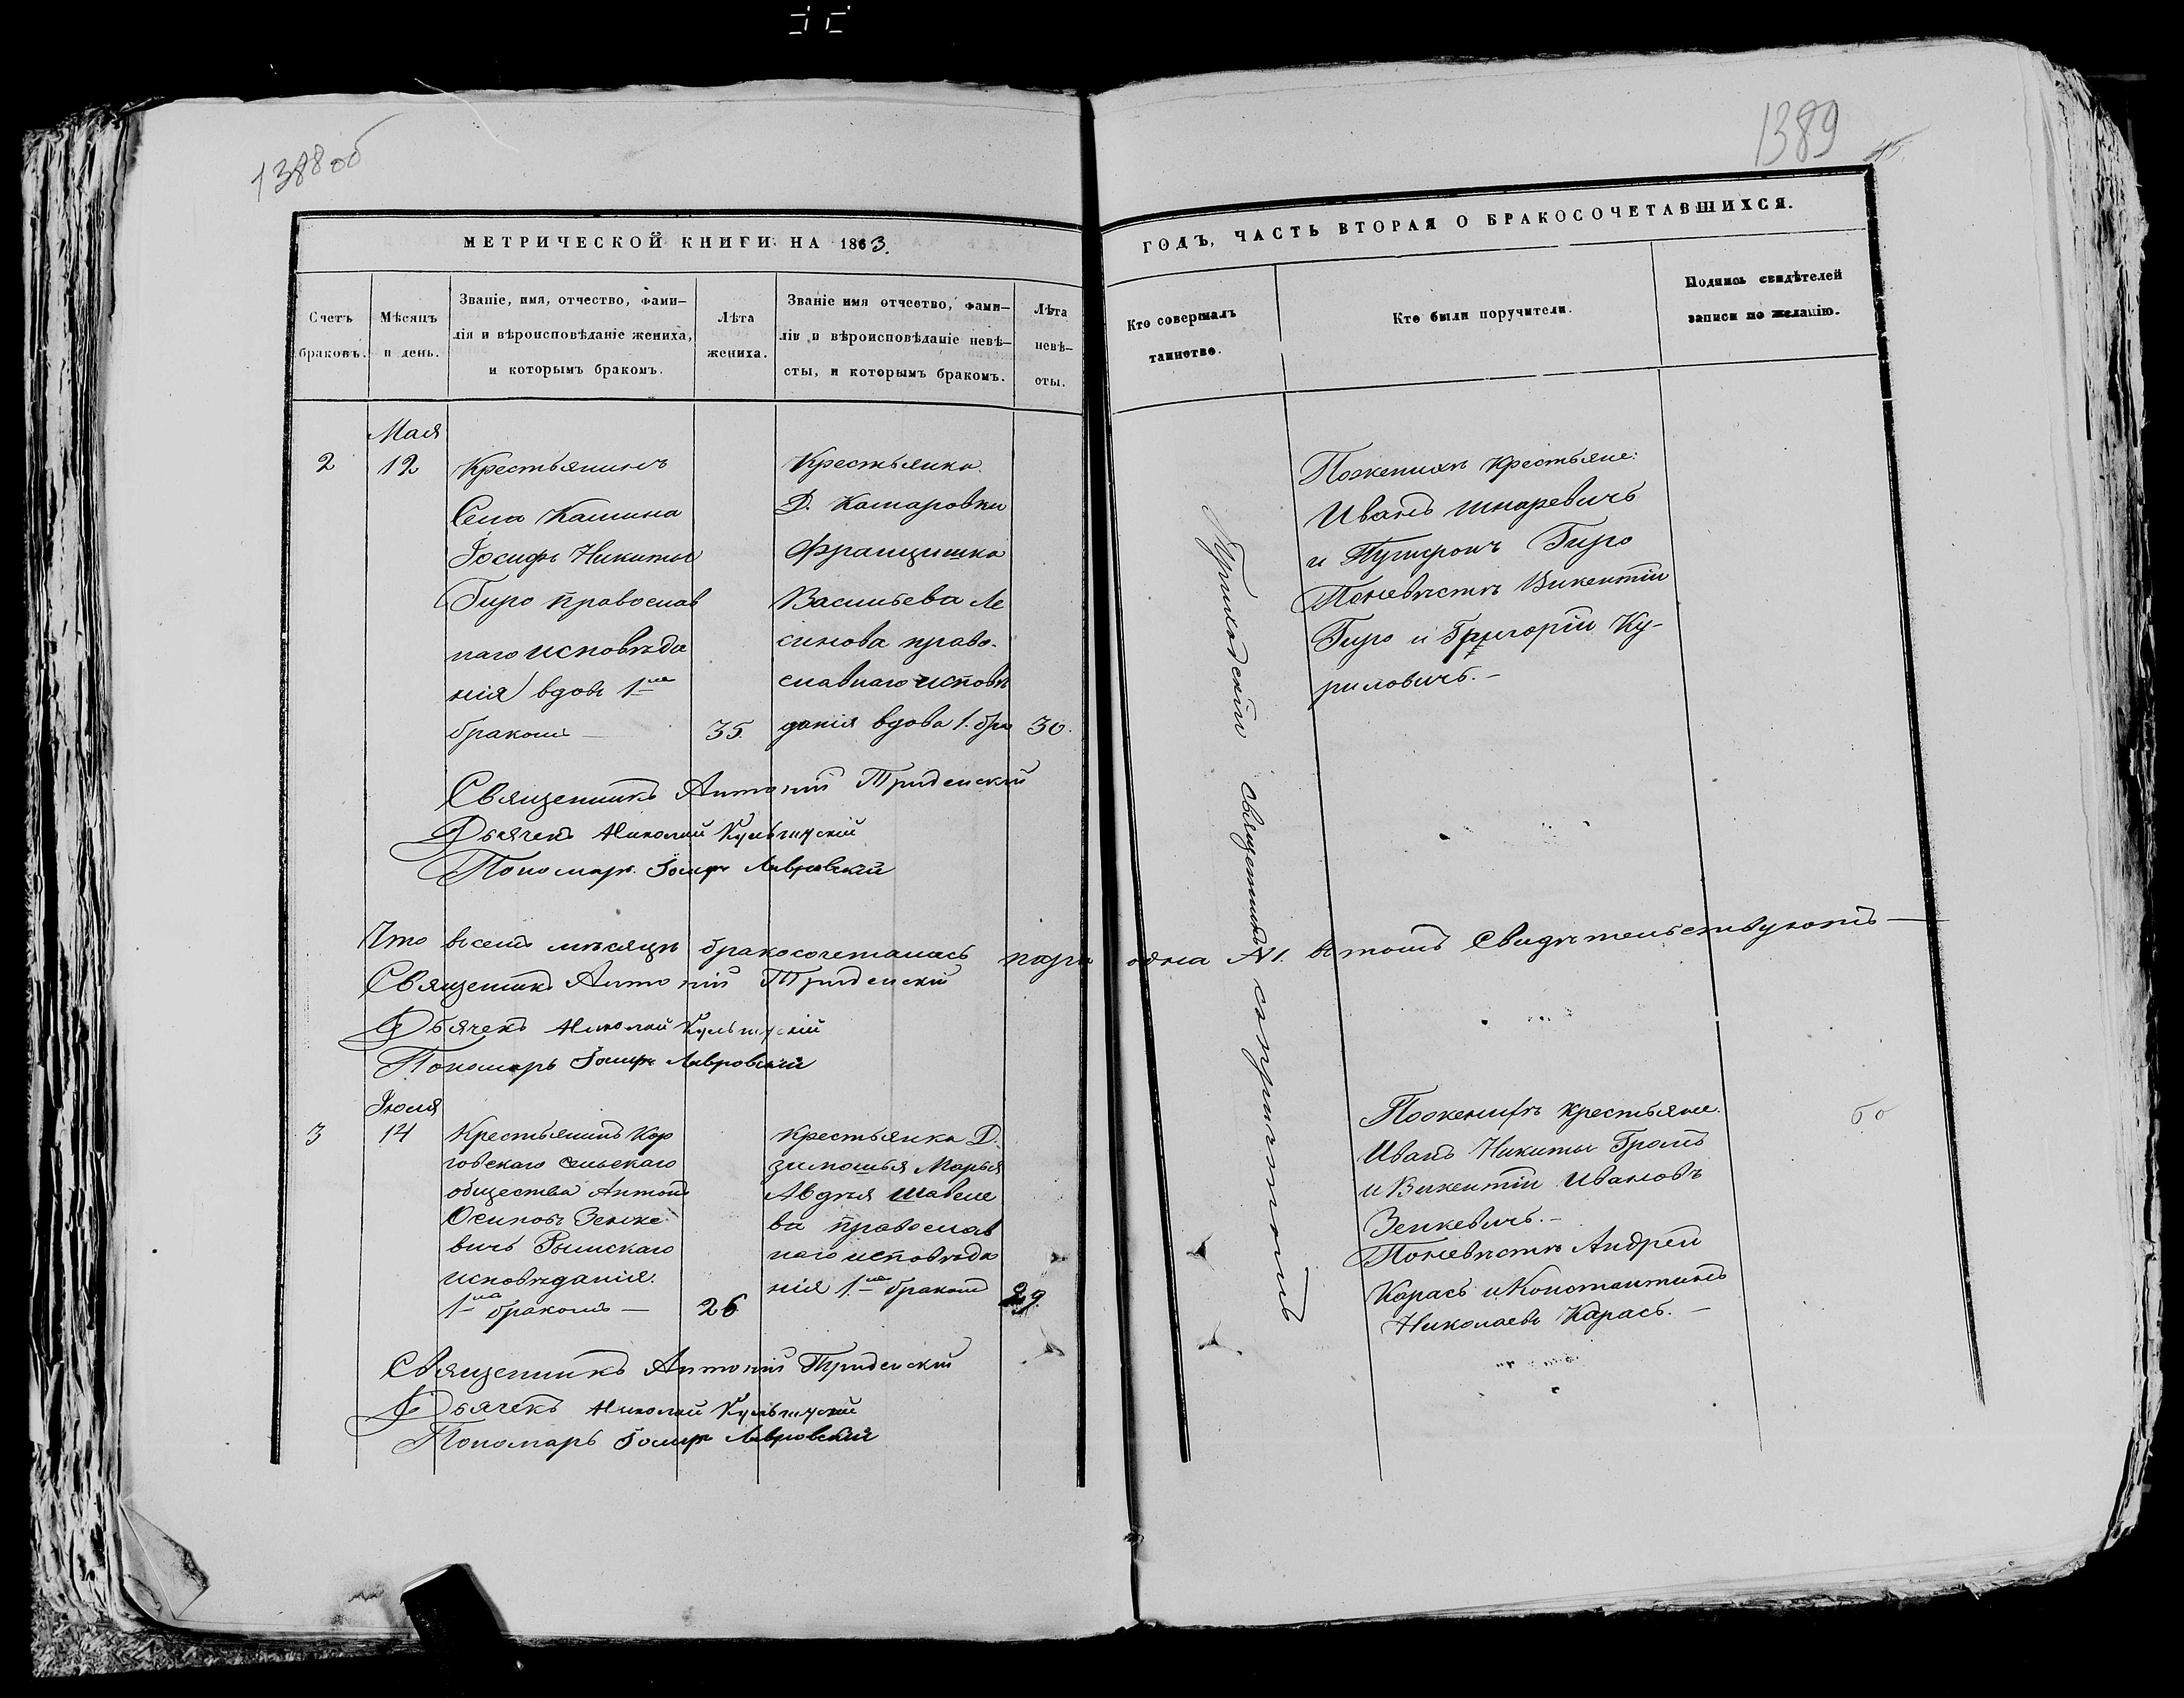 1388 об
1389
МЕТРИЧЕСКОЙ КНИГИ НА 1863.
ГОДЪ, ЧАСТЬ ВТОРАЯ О БРАКОСОЧЕТАВШИХСЯ.
Счетъ
браковъ.
Мѣсяцъ
и день.
Званіе, имя, отчество, фами-
лія и вѣроисповѣданіе жениха,
и которымъ бракомъ.
Лѣта
жениха.
Званіе имя отчество, фами-
лія и вѣроисповѣданіе невѣ-
сты, и которымъ бракомъ.
Лѣта
невѣ-
сты.
Кто совершалъ
таинство.
Кто были поручители.
Подпись свидѣтелей
записи по желанію.
Мая
2
12
Крестьянинъ
Села Камина
Іосифъ Никиты
Гиро Православ
наго исповѣда
нія вдов 1ме
бракомъ —
35.
Крестьянка
Д. Комаровки
Францишка
Васильева Ле
синова право-
славнаго исповѣ
данія вдова 1. бра
30.
Приходскій священникъ съ причтомъ
Поженихѣ Крестьяне:
Иванъ
и Гиро
Поневѣстѣ Викентій
Гиро и Григорій Ку-
риловичъ. —
Священникъ Антоній Триденскій
Дьячекъ Николай
Пономарь Іосифъ Лавровскій
Что всемъ мѣсяцѣ бракосочеталась пара одна №1. вътомъ Свидѣтельствуютъ —
Священникъ Антоній Триденскій
Дьячекъ Николай
Пономарь Іосифъ Лавровскій
Іюля
3
14
Крестьянинъ Кор
говскаго сельскаго
общества Антонъ
Осиповъ Зенке
вичъ Римскаго
исповѣданія.
1ма бракомъ —
26
Крестьянка Д.
зимошья Марья
Авдѣя Шавеле
ва православ
наго исповѣда
нія 1ме бракомъ
29.
Поженихѣ крестьяне.
Иванъ Никиты Громъ
и Викентій Ивановъ
Зенкевичъ. —
Поневѣстѣ Андрей
Карась и Константинъ
Николаевъ Карась. —
Священникъ Антоній Триденскій
Дьячекъ Николай
Пономарь Іосифъ Лавровскій